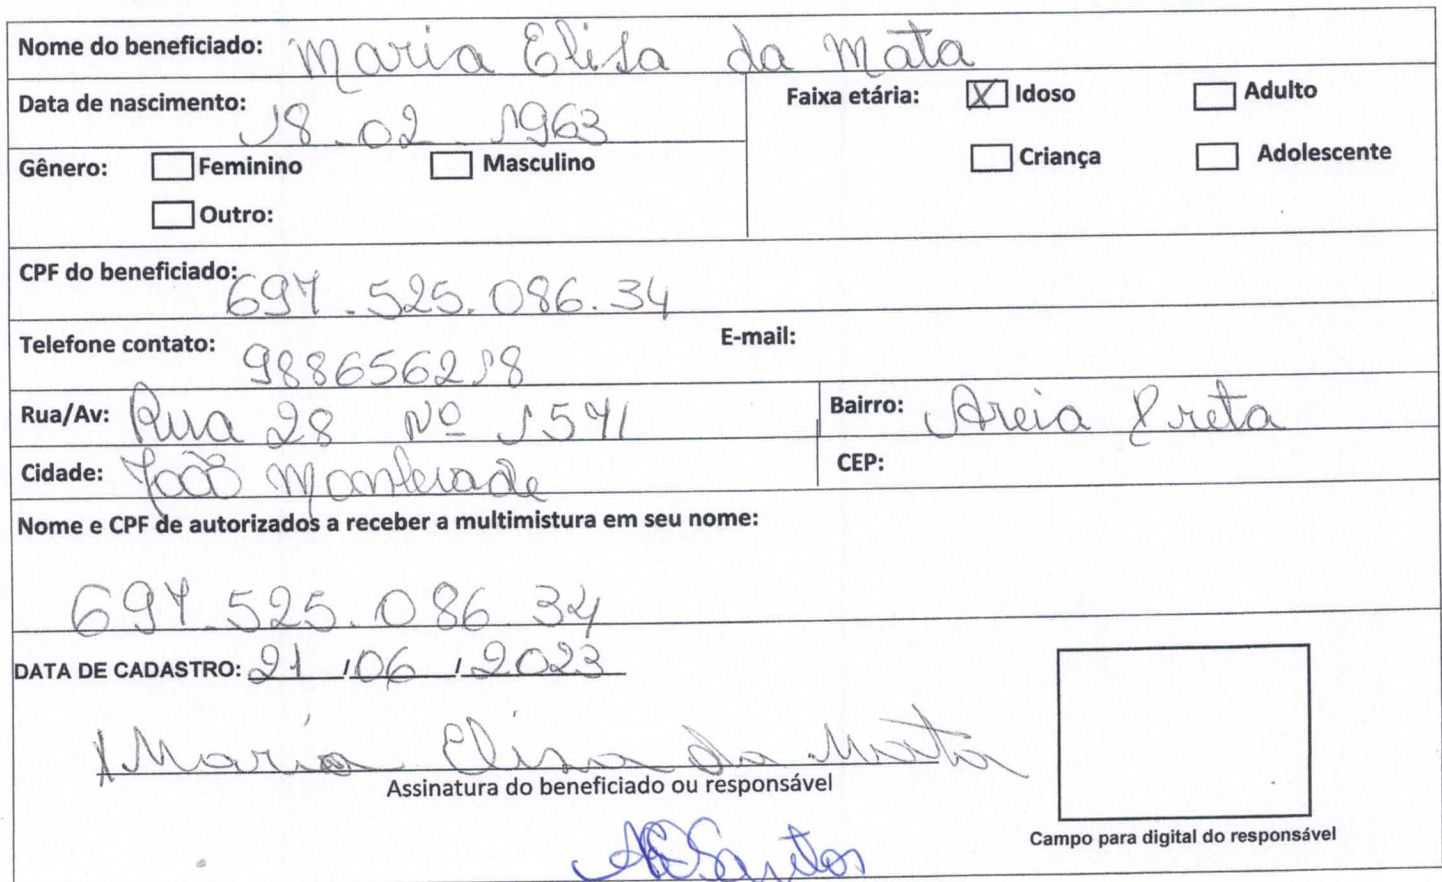 Nome do beneficiado: Maria Elisa da Mata
Data de nascimento: 18.02.1963
Faixa etária: [X] Idoso [ ] Adulto
[ ] Criança [ ] Adolescente
Gênero: [ ] Feminino [ ] Masculino
[ ] Outro:
CPF do beneficiado: 697.525.086.34
Telefone contato: 988656218 E-mail:
Rua/Av: Rua 28 Nº 1541 Bairro: Areia Preta
Cidade: João Monlevade CEP:
Nome e CPF de autorizados a receber a multimistura em seu nome:
697.525.086.34
DATA DE CADASTRO: 21/06/2023
Maria Elisa da Mata
Assinatura do beneficiado ou responsável
Campo para digital do responsável
Santos